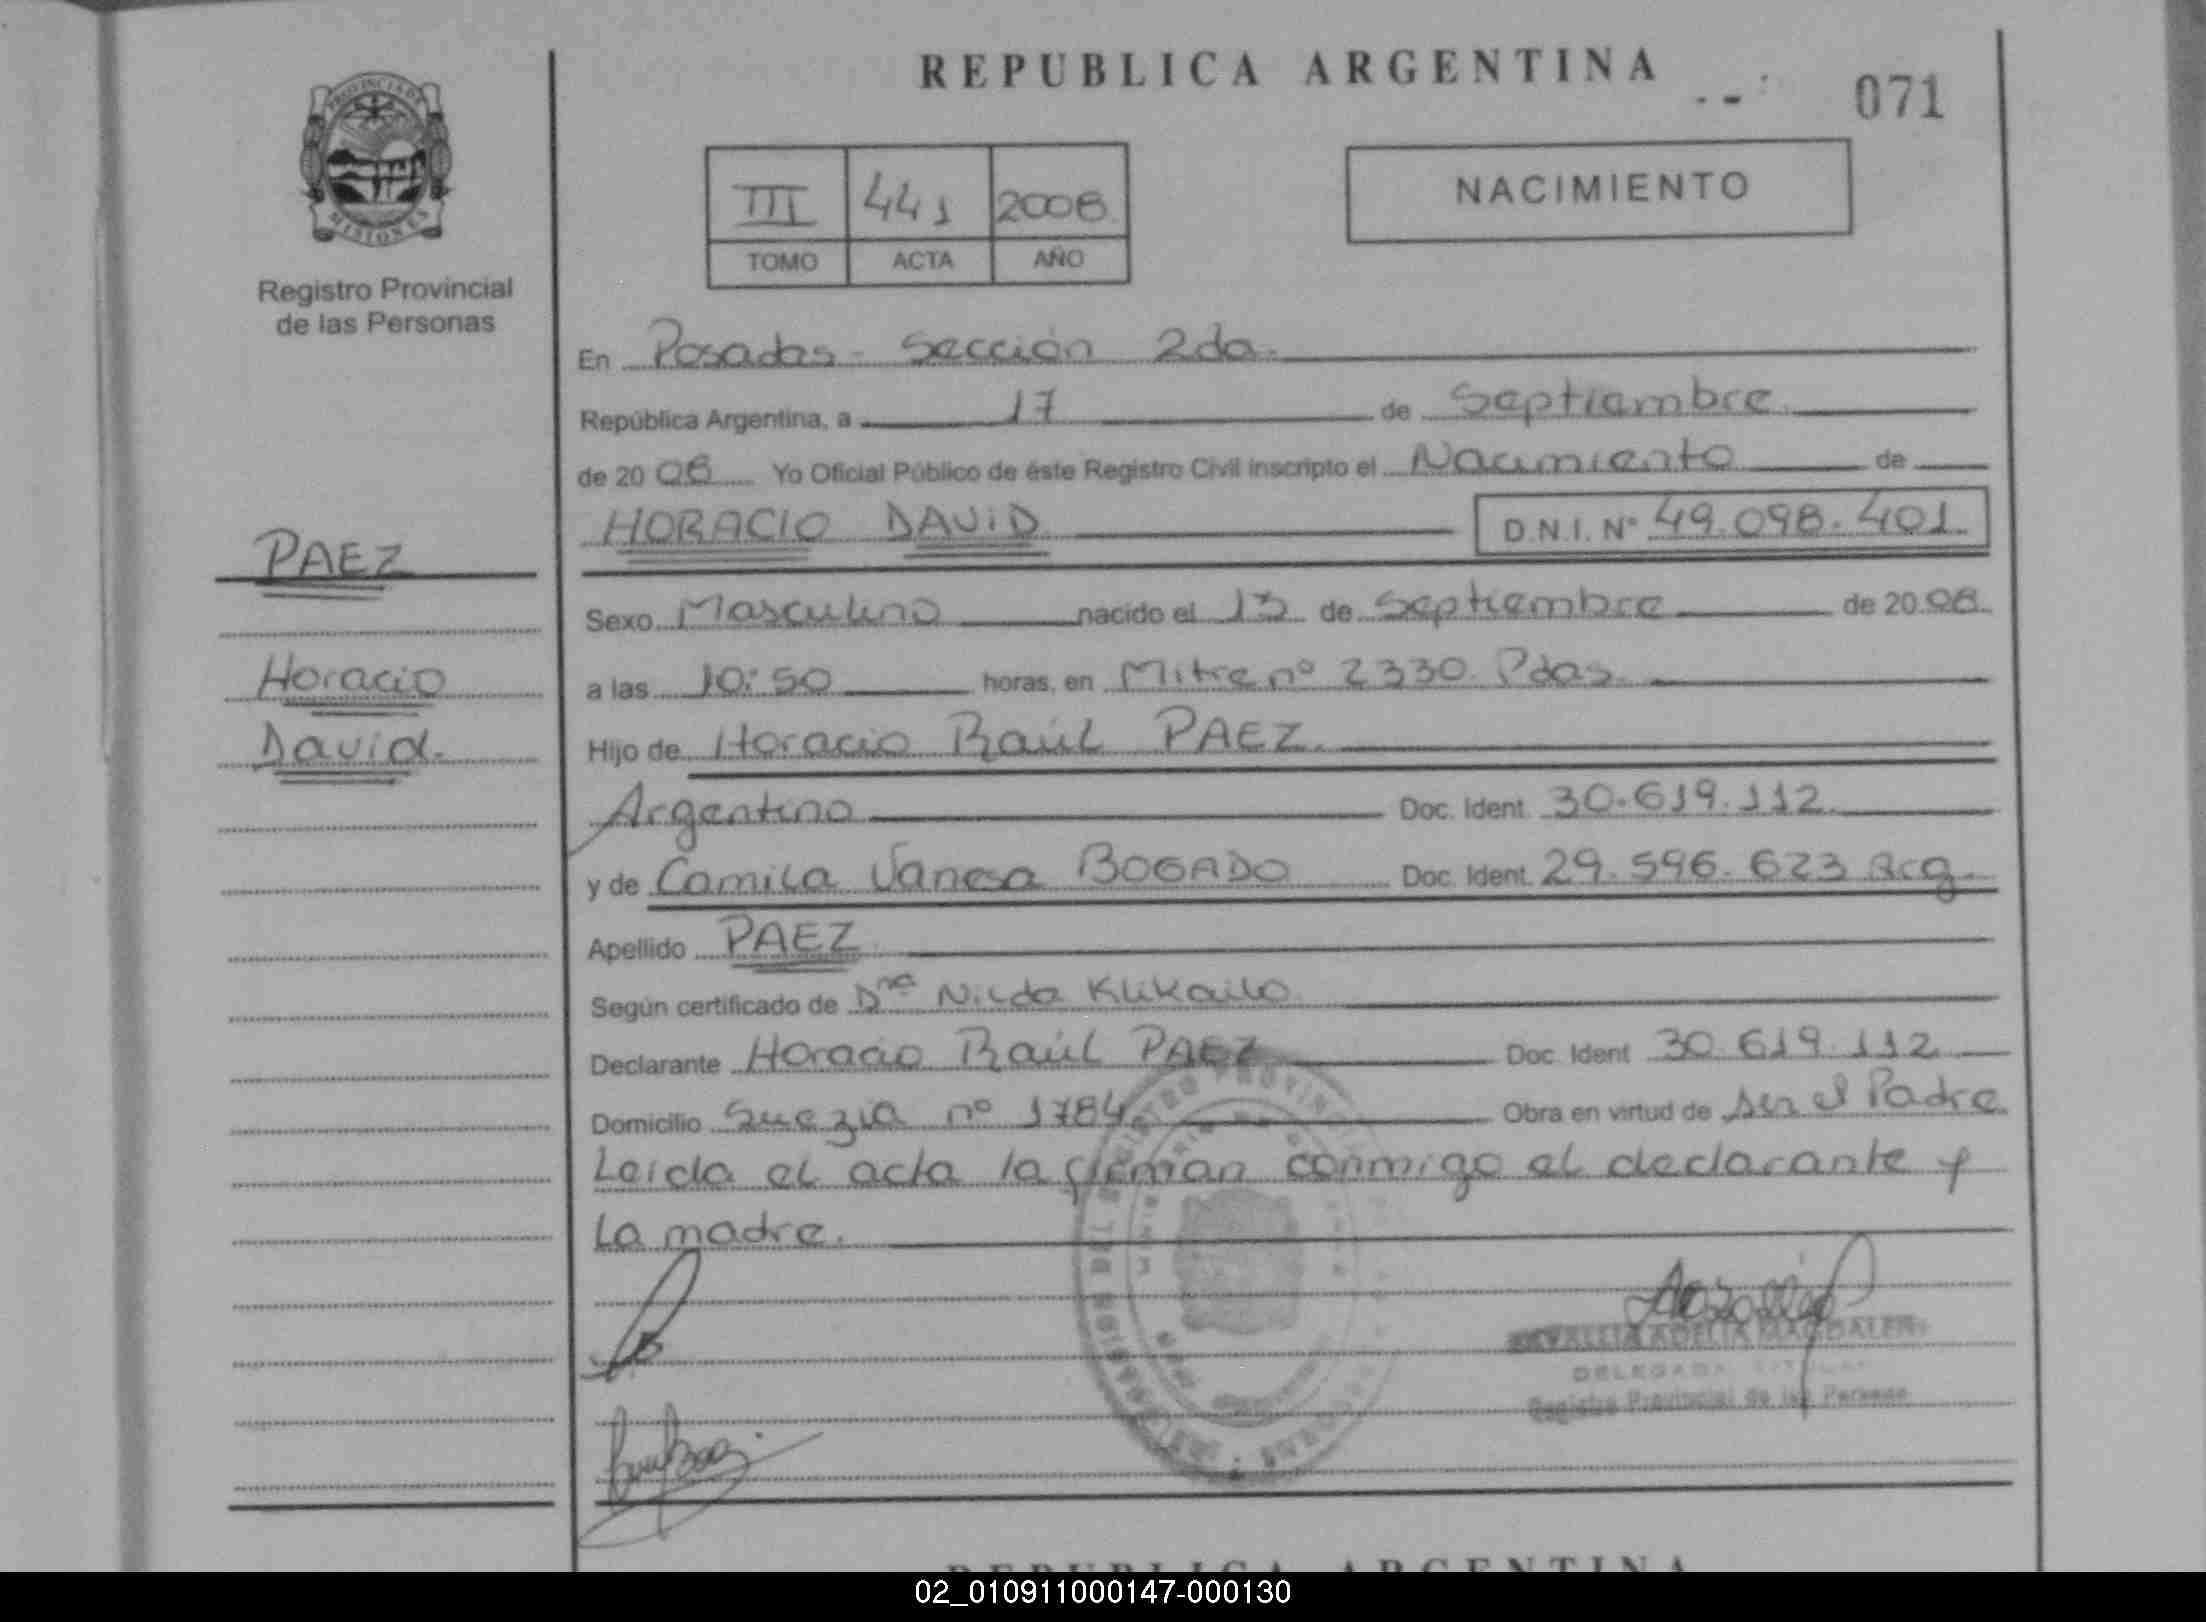 REPUBLICA ARGENTINA
071
PROVINCIA DE
MISIONES
Registro Provincial
de las Personas
III 441 2008
TOMO ACTA AÑO
NACIMIENTO
En Posadas - Sección 2da.
República Argentina, a 17 de Septiembre
de 20 08 Yo Oficial Público de éste Registro Civil inscripto el Nacimiento de
HORACIO DAVID D.N.I. Nº 49.098.401
PAEZ
Horacio
David.
Sexo Masculino nacido el 13 de Septiembre de 20 08
a las 10:50 horas, en Mitre nº 2330 Pdas.
Hijo de Horacio Raúl PAEZ.
Argentino Doc. Ident. 30.619.112
y de Camila Vanesa BOGADO Doc. Ident. 29.596.623 Arg.
Apellido PAEZ
Según certificado de Dra Nilda
Declarante Horacio Raúl PAEZ Doc. Ident 30.619.112
Domicilio Suezia nº 1784 Obra en virtud de ser el Padre
Leida el acta la firman conmigo el declarante y
La madre.
ADELIA MAGDALEN
DELEGADA TITULAR
Registro Provincial de las Persona
REPUBLICA ARGENTINA
02_010911000147-000130